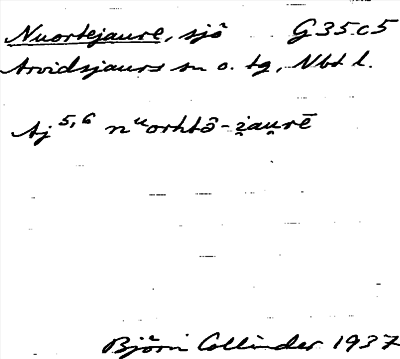 Nuortejaure, sjö G 35 c5
Arvidsjaurs sn o. tg, Nbt l.
Aj 5,6 nᵘorhtō-ʒ̥au̯rē
Björn Collinder 1937